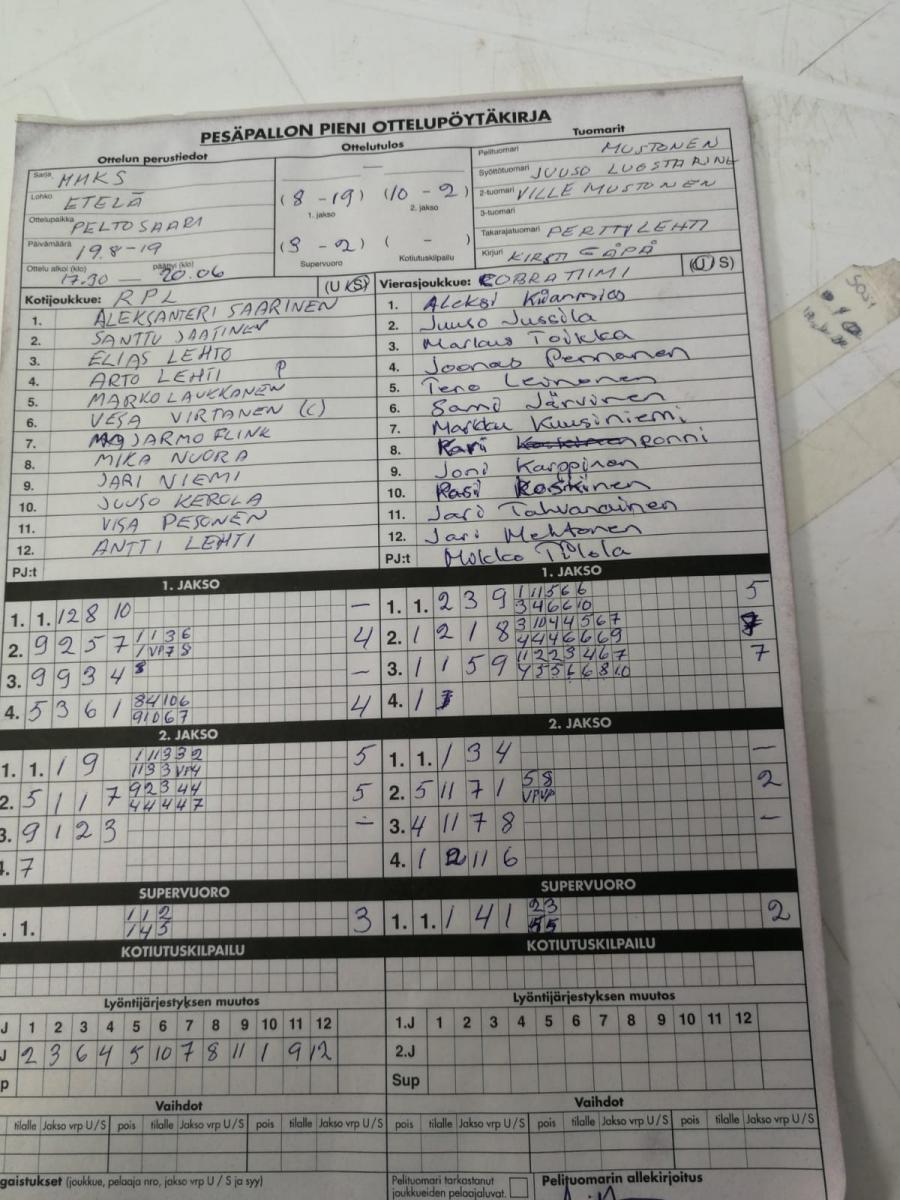 PESÄPALLON PIENI OTTELUPÖYTÄKIRJA
Ottelun perustiedot
Sarja MMKS
Lohko ETELÄ
Ottelupaikka PELTOSAARI
Päivämäärä 19.8-19
Ottelu alkoi (klo) 17.30 — päättyi (klo) 20.06
Ottelutulos
—
(8 - 19) (10 - 2)
1. jakso 2. jakso
(3 - 2) ( - )
Supervuoro Kotiutuskilpailu
Tuomarit
Pelituomari MUSTONEN
Syöttötuomari JUUSO
2-tuomari VILLE MUSTONEN
3-tuomari
Takarajatuomari PERTTYLEHTI
Kirjuri KIRSTI
Kotijoukkue: RPL (U S)
1. ALEKSANTERI SAARINEN
2. SANTTU
3. ELIAS LEHTO
4. ARTO LEHTI P
5. MARKO LAUKKANEN
6. VESA VIRTANEN (C)
7. JARMO FLINK
8. MIKA NUORA
9. JARI NIEMI
10. JUUSO KEROLA
11. VISA PESONEN
12. ANTTI LEHTI
PJ:t
Vierasjoukkue: COBRATIIMI (U S)
1. Aleksi
2. Juuso Jussila
3. Markus Toikka
4. Joonas Pennanen
5. Tero Leinonen
6. Sami Järvinen
7. Markku Kuusiniemi
8. Kari Ponni
9. Joni Karppinen
10. Pasi Koskinen
11. Jari Tahvanainen
12. Jari Mehtonen
PJ:t Mikko
1. JAKSO
1. 1. 12 8 10 —
2. 9 2 5 7 1 1 3 6 4
1 VP 7 8
3. 9 9 3 4 —
4. 5 3 6 1 8 4 10 6 4
9 10 6 7
2. JAKSO
1. 1. 1 9 1 1 1 3 3 2 5
1 1 3 3 VP 4
2. 5 1 1 7 9 2 3 4 4 5
4 4 4 4 7
3. 9 1 2 3 —
4. 7
SUPERVUORO
1. 1. 1 1 2 3
1 4 5
KOTIUTUSKILPAILU
Lyöntijärjestyksen muutos
J 1 2 3 4 5 6 7 8 9 10 11 12
J 2 3 6 4 5 10 7 8 11 1 9 12
p
Vaihdot
tilalle Jakso vrp U/S pois tilalle Jakso vrp U/S pois tilalle Jakso vrp U/S
1. JAKSO
1. 1. 2 3 9 1 11 5 6 6 5
3 4 6 6 10
2. 1 2 1 8 3 10 4 4 5 6 7
4 4 4 6 6 6 9
3. 1 1 5 9 11 2 2 3 4 6 7 7
4 5 5 6 6 8 10
4. 1
2. JAKSO
1. 1. 1 3 4 —
2. 5 11 7 1 5 8 2
VP VP
3. 4 11 7 8 —
4. 1 2 11 6
SUPERVUORO
1. 1. 1 4 1 2 3 2
5 5
KOTIUTUSKILPAILU
Lyöntijärjestyksen muutos
1.J 1 2 3 4 5 6 7 8 9 10 11 12
2.J
Sup
Vaihdot
pois tilalle Jakso vrp U/S pois tilalle Jakso vrp U/S pois tilalle Jakso vrp U/S
gaistukset (joukkue, pelaaja nro, jakso vrp U / S ja syy)
Pelituomari tarkastanut
joukkueiden pelaajaluvat.
Pelituomarin allekirjoitus